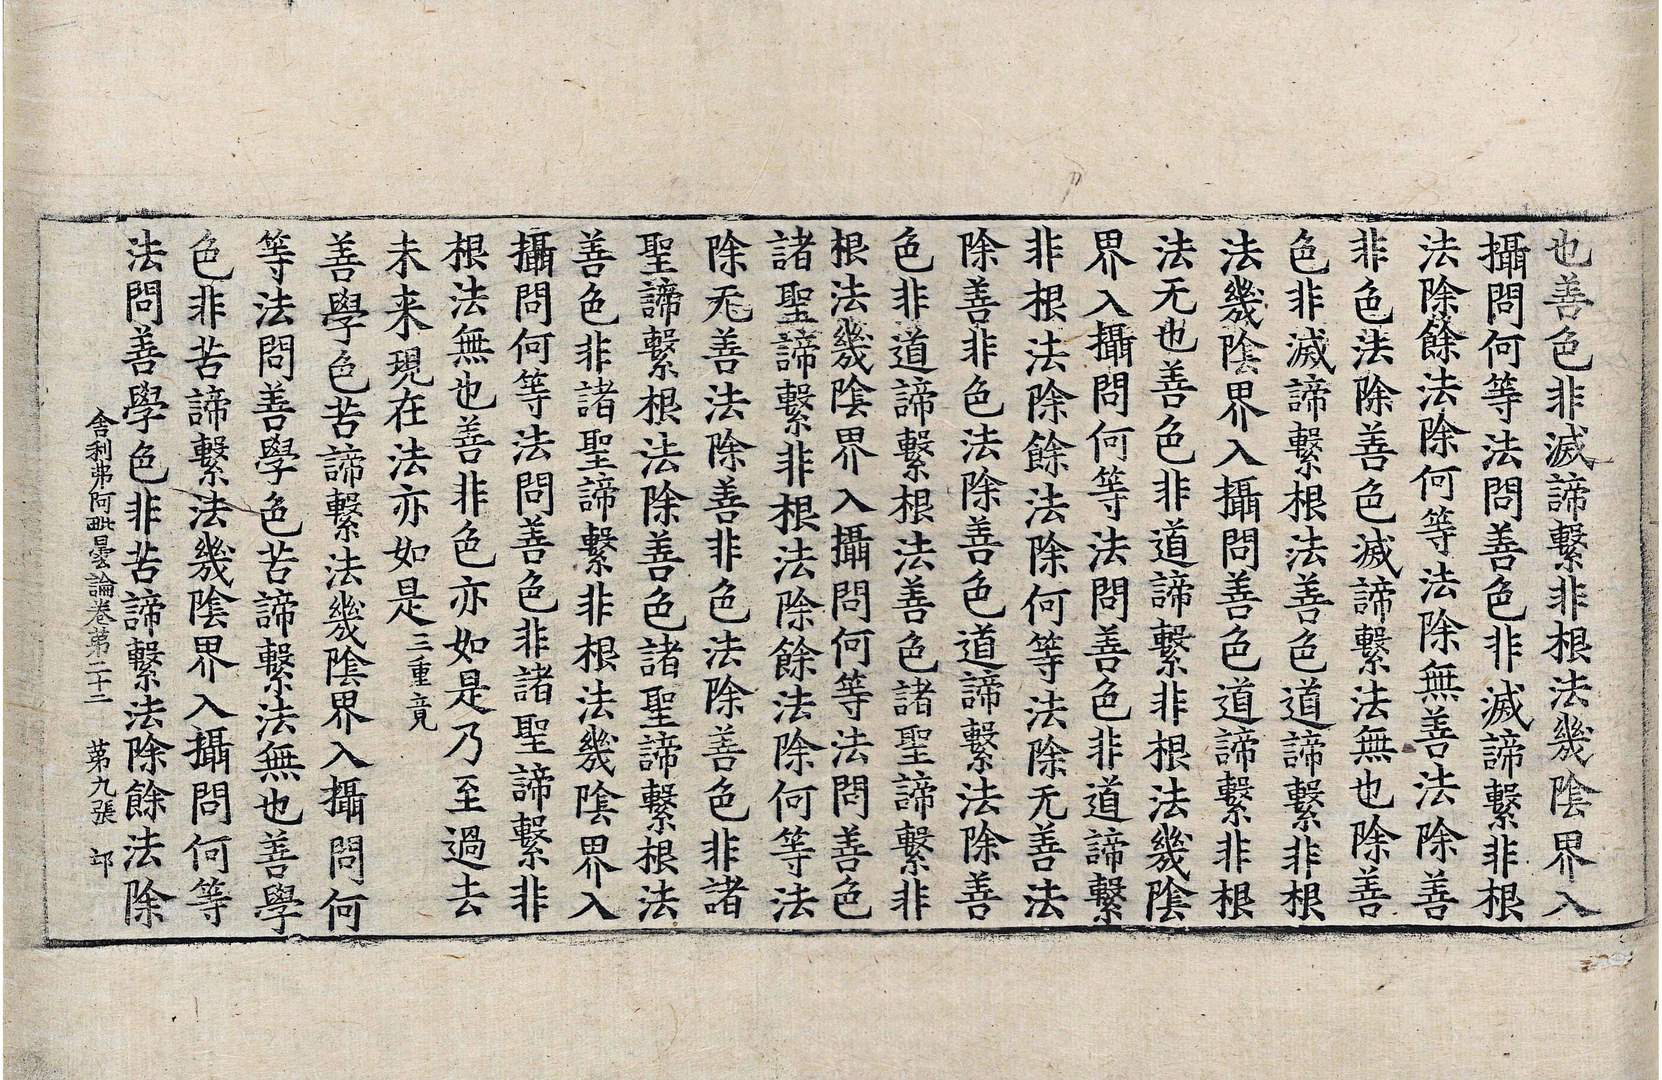 也善色非滅諦繫非根法幾陰界入
攝問何等法問善色非滅諦繫非根
法除餘法除何等法除無善法除善
非色法除善色滅諦繫法無也除善
色非滅諦繫根法善色道諦繫非根
法幾陰界入攝問善色道諦繫非根
法无也善色非道諦繫非根法幾陰
界入攝問何等法問善色非道諦繫
非根法除餘法除何等法除无善法
除善非色法除善色道諦繫法除善
色非道諦繫根法善色諸聖諦繫非
根法幾陰界入攝問何等法問善色
諸聖諦繫非根法除餘法除何等法
除无善法除善非色法除善色非諸
聖諦繫根法除善色諸聖諦繫根法
善色非諸聖諦繫非根法幾陰界入
攝問何等法問善色非諸聖諦繫非
根法無也善非色亦如是乃至過去
未来現在法亦如是三重竟
善學色苦諦繫法幾陰界入攝問何
等法問善學色苦諦繫法無也善學
色非苦諦繫法幾陰界入攝問何等
法問善學色非苦諦繫法除餘法除
舍利弗阿毗曇論卷第二十二 第九張 邙